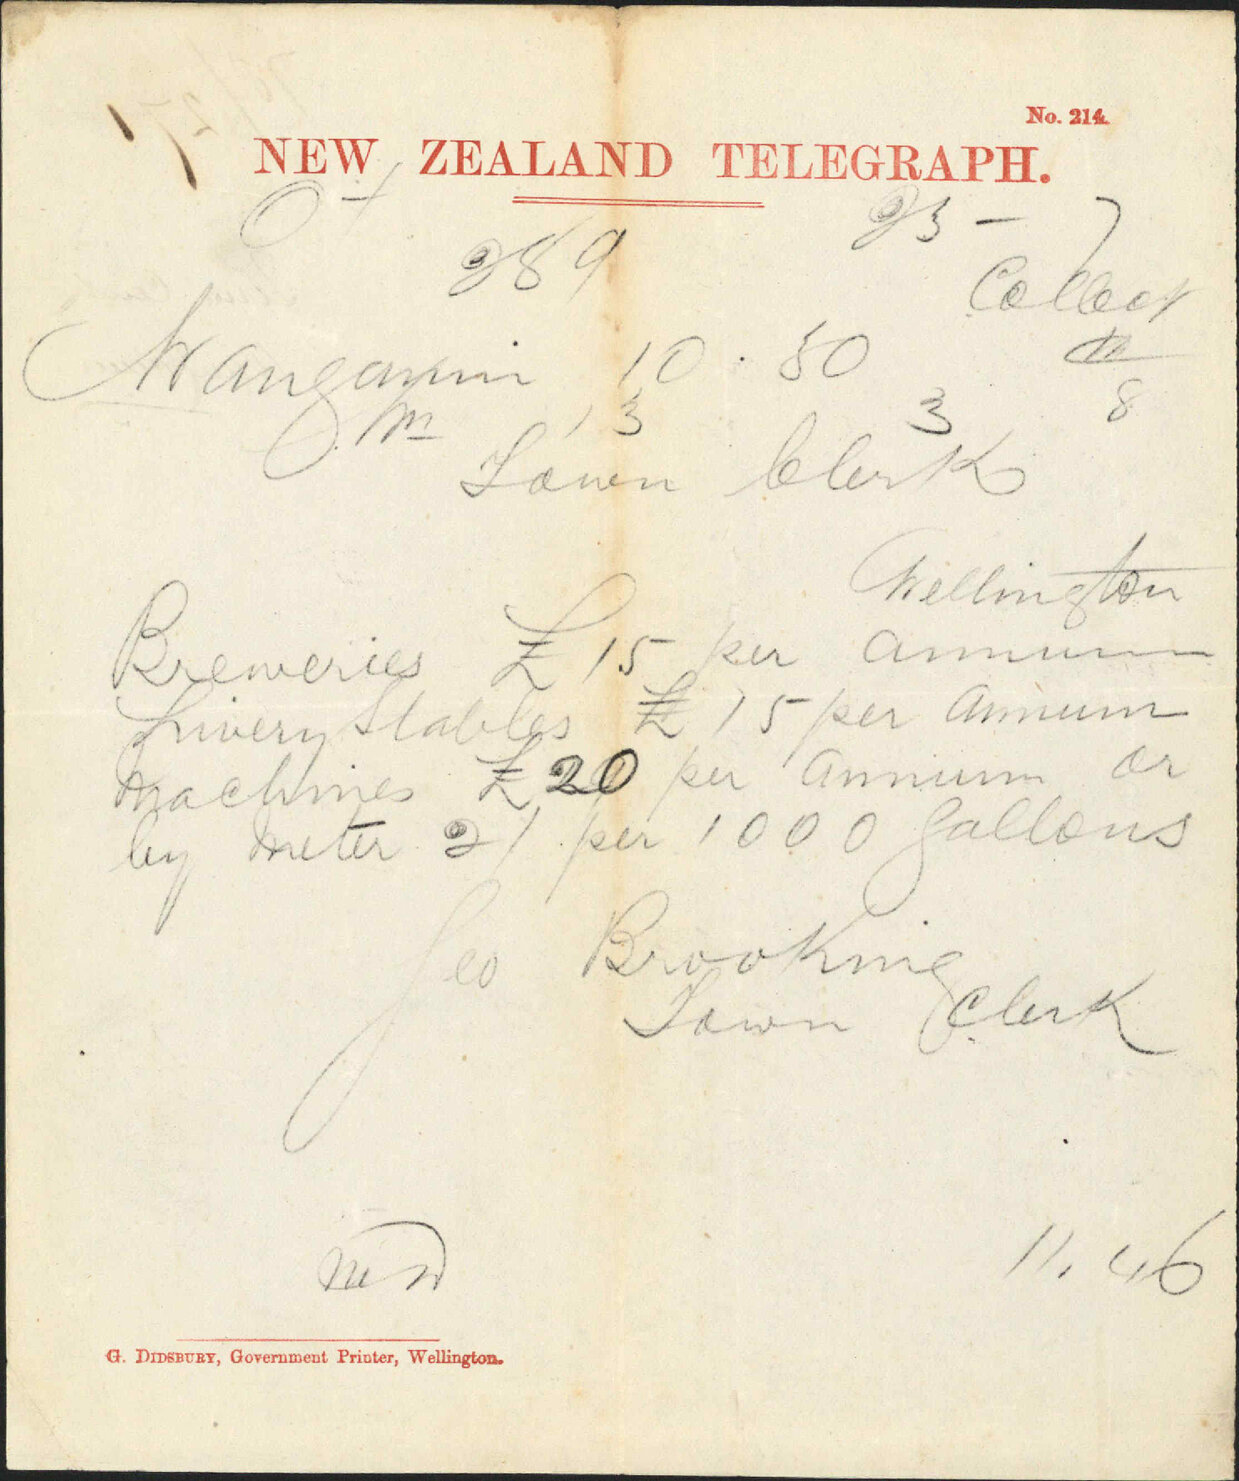 No. 214.
NEW ZEALAND TELEGRAPH.
23 –
289
Collect
Wanganui 10.50
8
13 3
Town Clerk
Wellington
Breweries £15 per annum
Livery Stables £15 per annum
machines £20 per annum or
by meter 2/ per 1000 gallons
Geo Brooking
Town Clerk
11.46
G. DIDSBURY, Government Printer, Wellington.